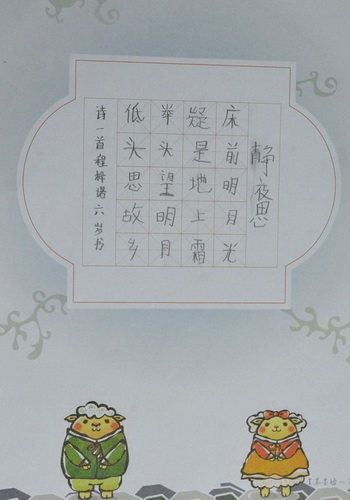 静夜思
床前明月光
疑是地上霜
举头望明月
低头思故乡
诗一首程梓诺六岁书